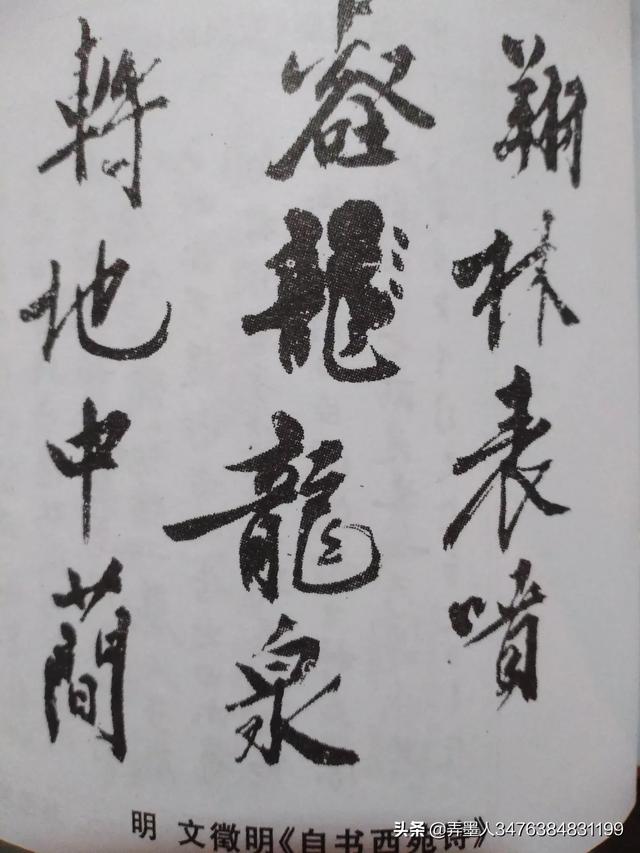 翔林表噴
壑龍龍泉
轉地中蕳
明 文徵明《自书西苑诗》
头条 @弄墨人3476384831199